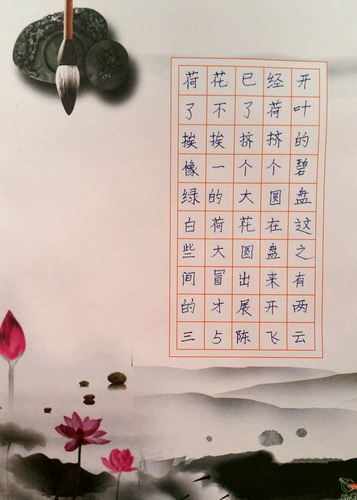 荷花已经开
了不了荷叶
挨挨挤挤的
像一个个碧
绿的大圆盘
白荷花在这
些大圆盘之
间冒出来有
的才展开两
三5陈飞云